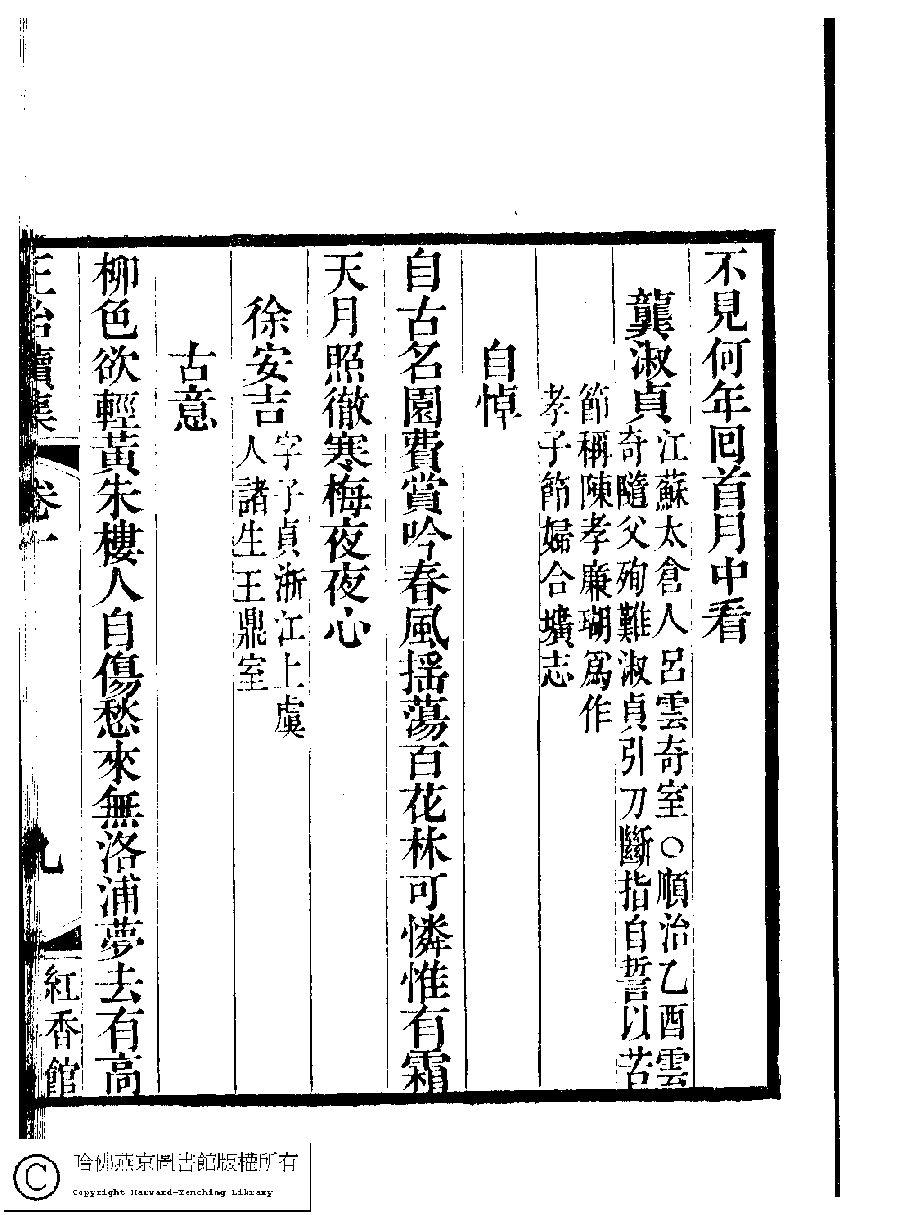 不見何年回首月中看
龔淑貞
江蘇太倉人呂雲奇室○順治乙酉雲
奇隨父殉難淑貞引刀斷指自誓以苦
節稱陳孝廉瑚爲作
孝子節婦合壙志
自悼
自古名園費賞吟春風揺蕩百花林可憐惟有霜
天月照徹寒梅夜夜心
徐安吉
字子貞浙江上虞
人諸生王鼎室
古意
柳色欲輕黃朱樓人自傷愁來無洛浦夢去有高
卷一
九
紅香館
哈佛燕京圖書館版權所有
Copyright Harvard-Yenching Library